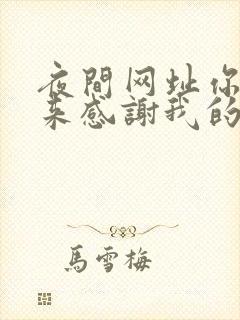 夜間网址你
来感謝我的
馬雪梅